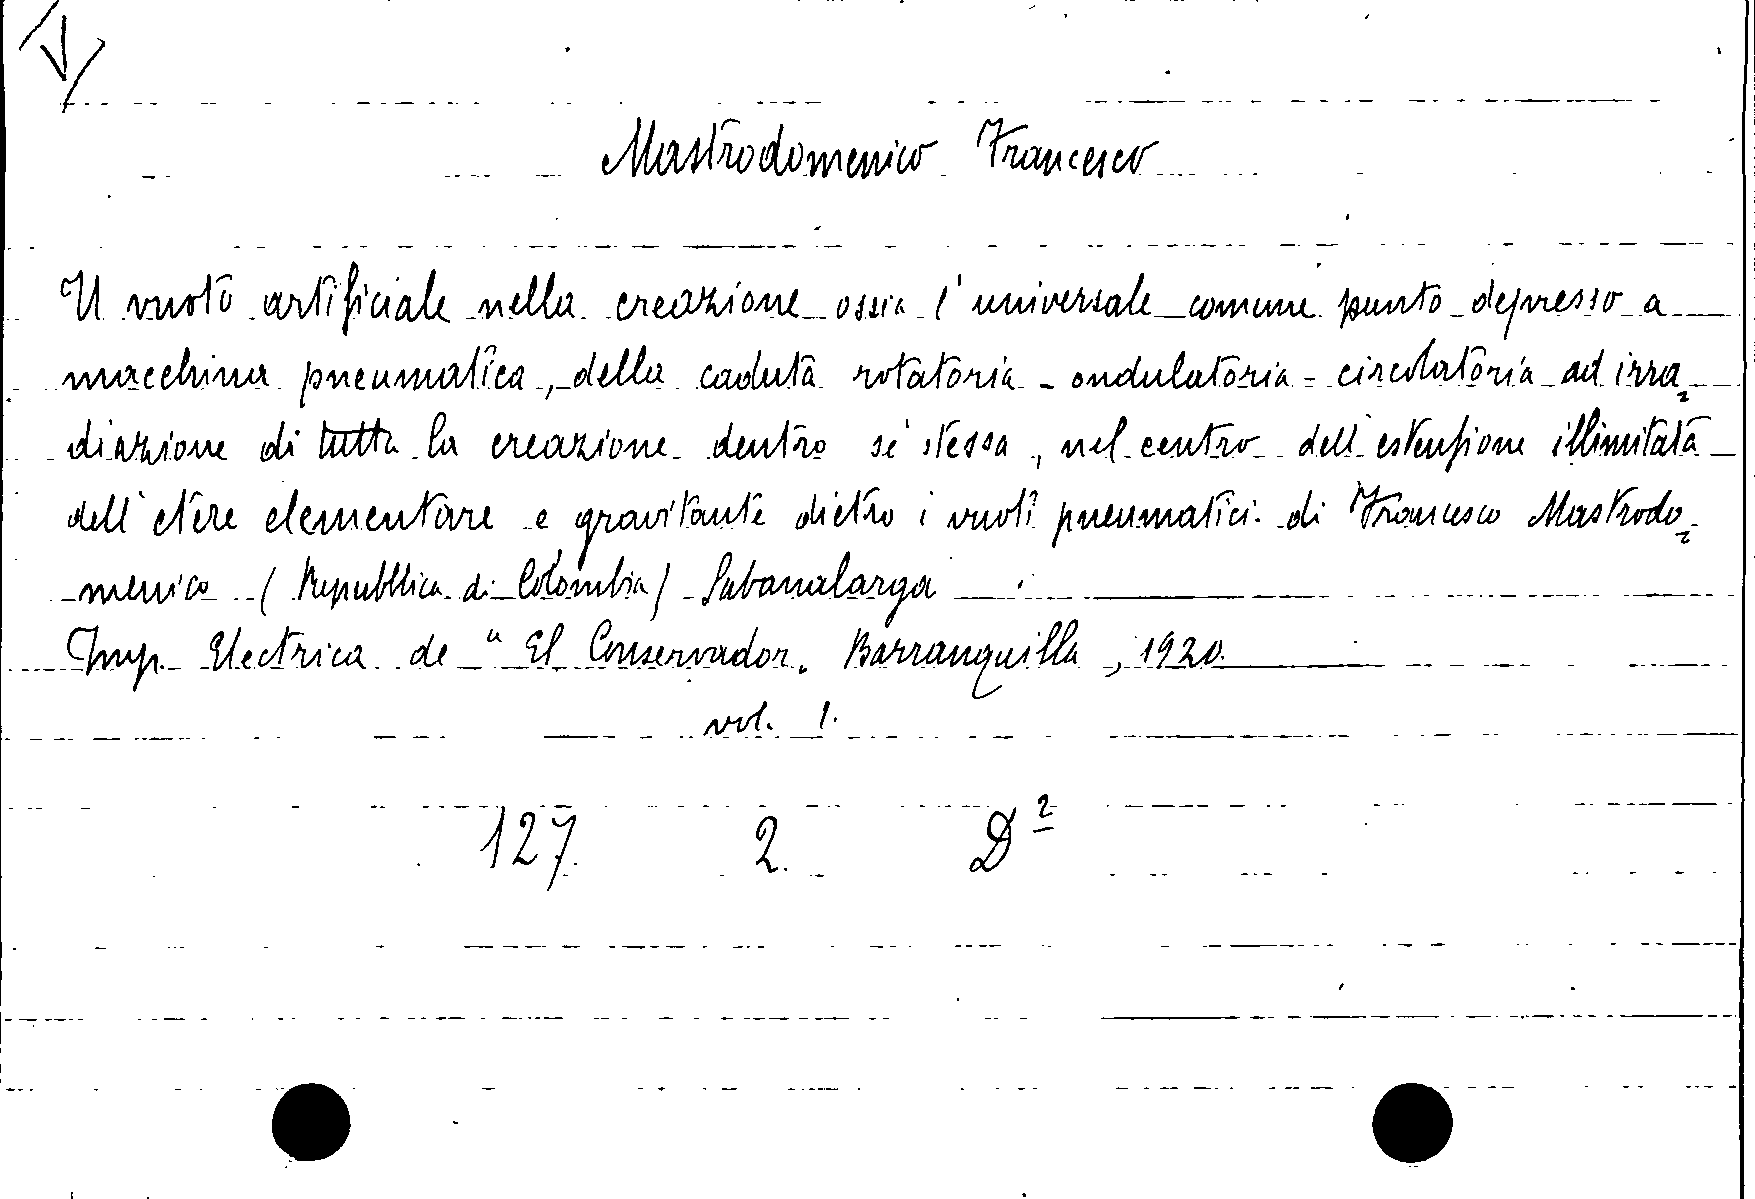 Mastrodomenico Francesco
Il vuoto artificiale nella creazione ossia l'universale comune punto depresso a
macchina pneumatica, della caduta rotatoria - ondulatoria - circolatoria ad irra=
diazione di tutta la creazione dentro sé stessa, nel centro dell'estensione illimitata
dell'etere elementare e gravitante dietro i vuoti pneumatici. di Francesco Mastrodo=
menico (Repubblica di Colombia) Sabanalarga
Imp. Electrica de "El Conservador. Barranquilla, 1920.
vol. 1.
127 2. D²